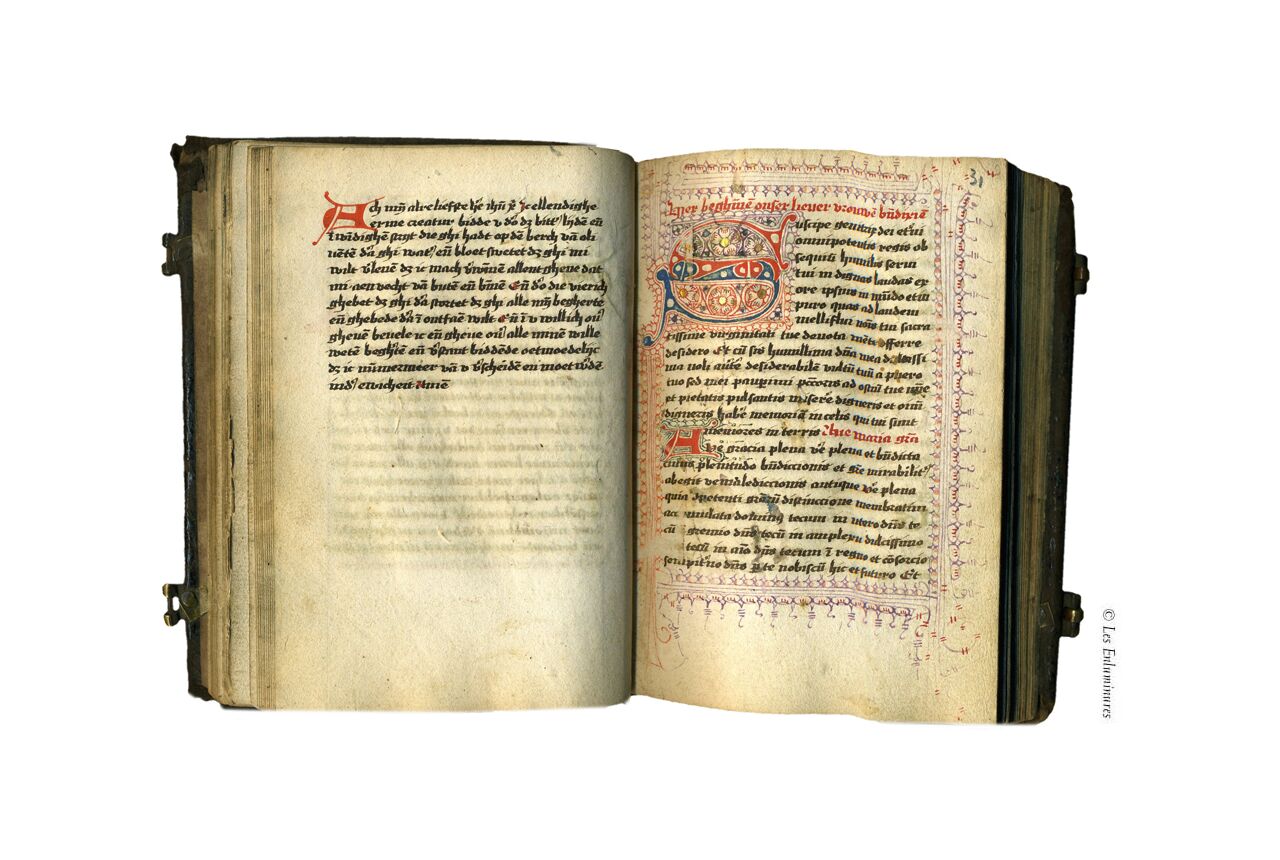 Ach mȳ alre liefste h̄e ih̄u x̄ Ic ellendighe
erme creatur bidde v d'o dz bitt' lijdē en̄
wīdighē strijt die ghi hadt op dē berch vā oli
uētē d'a ghi wat' en̄ bloet swetet dz ghi mi
wilt v'lenē dz ic mach v'wīnē allent ghene dat
mi aen vecht vā butē en̄ bīnē En̄ d'o die vierich
ghebet dz ghi d'a stortet dz ghi alle mȳ begherte
en̄ ghebede d'a ī ontfaē wilt En̄ ī v willich ou'
gheuē beuele ic en̄ gheue ou' alle minē wille
wetē beghītē en̄ v'stant biddēde oetmoedelijc
dz ic nūmermēer vā v v'scheidē en moet w'dē
ewicheit Amē
31
Hier beghīnē onser lieuer vrouwē
Suscipe genitrix dei et v'i
omnipotentis regis ob
sequiū humilis serui
tui in dignas laudas ex
ore ipsius in mūdo et im
puro quas ad laudem
melliflui nois tui sacra
tissime virginitati tue deuota mēte offerre
desidero Et cū sis humillima dn̄a mea
ma noli aūte desiderabilē vultū tuū a p̄fero
tuo sed mei paup̄imi pc̄c̄ois ad ostiū tue
et pietatis pulsantis misere digneris et oīm
digneris hab'e memoriā in celis qui tui sunt
memores in terris Aue maria gr̄a
Aue gracia plena v'e plena et bn̄dicta
cuius plenitudo bn̄diccionis et gr̄e mirabilit'
abegit ve maledictionis antique v'e plena
quia opetenti grarū distinccione membratim
accumulata domin9 tecum in vtero dn̄s te
cū gremio dn̄s tecū in amplexu dulcissimo
tecū in aīo dn̄s tecum ī regno et cōsorcio
sempit'no dn̄s p te nobiscū hic et futuro Et
© Les Enluminures